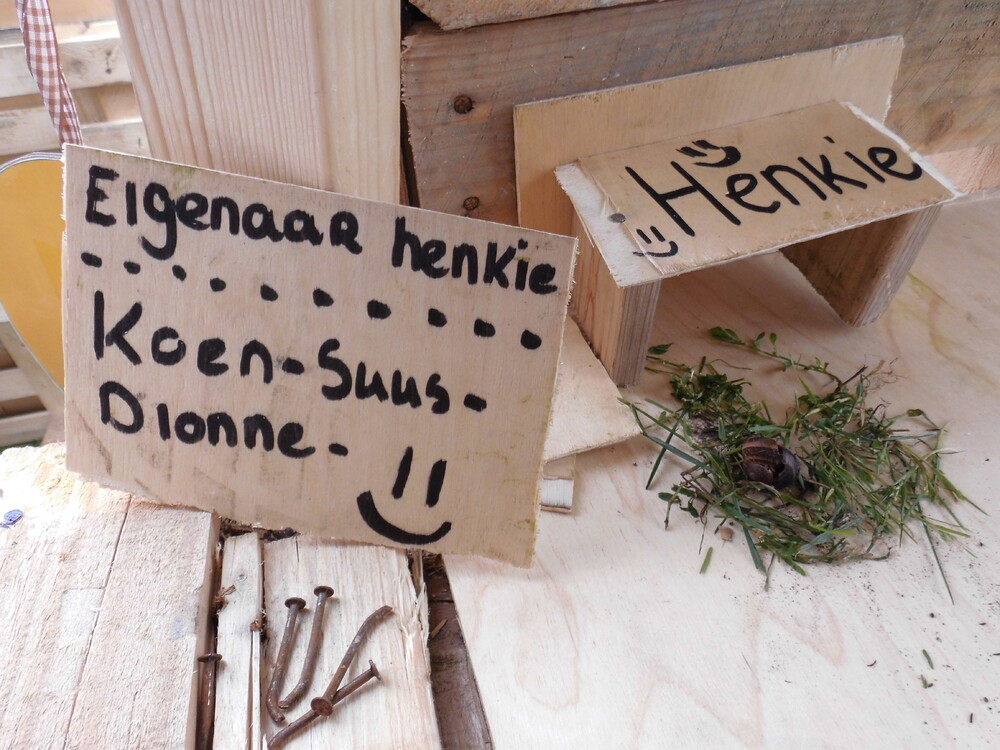 EIgenaaR henkie
Koen-Suus-
DIonne-
Henkie